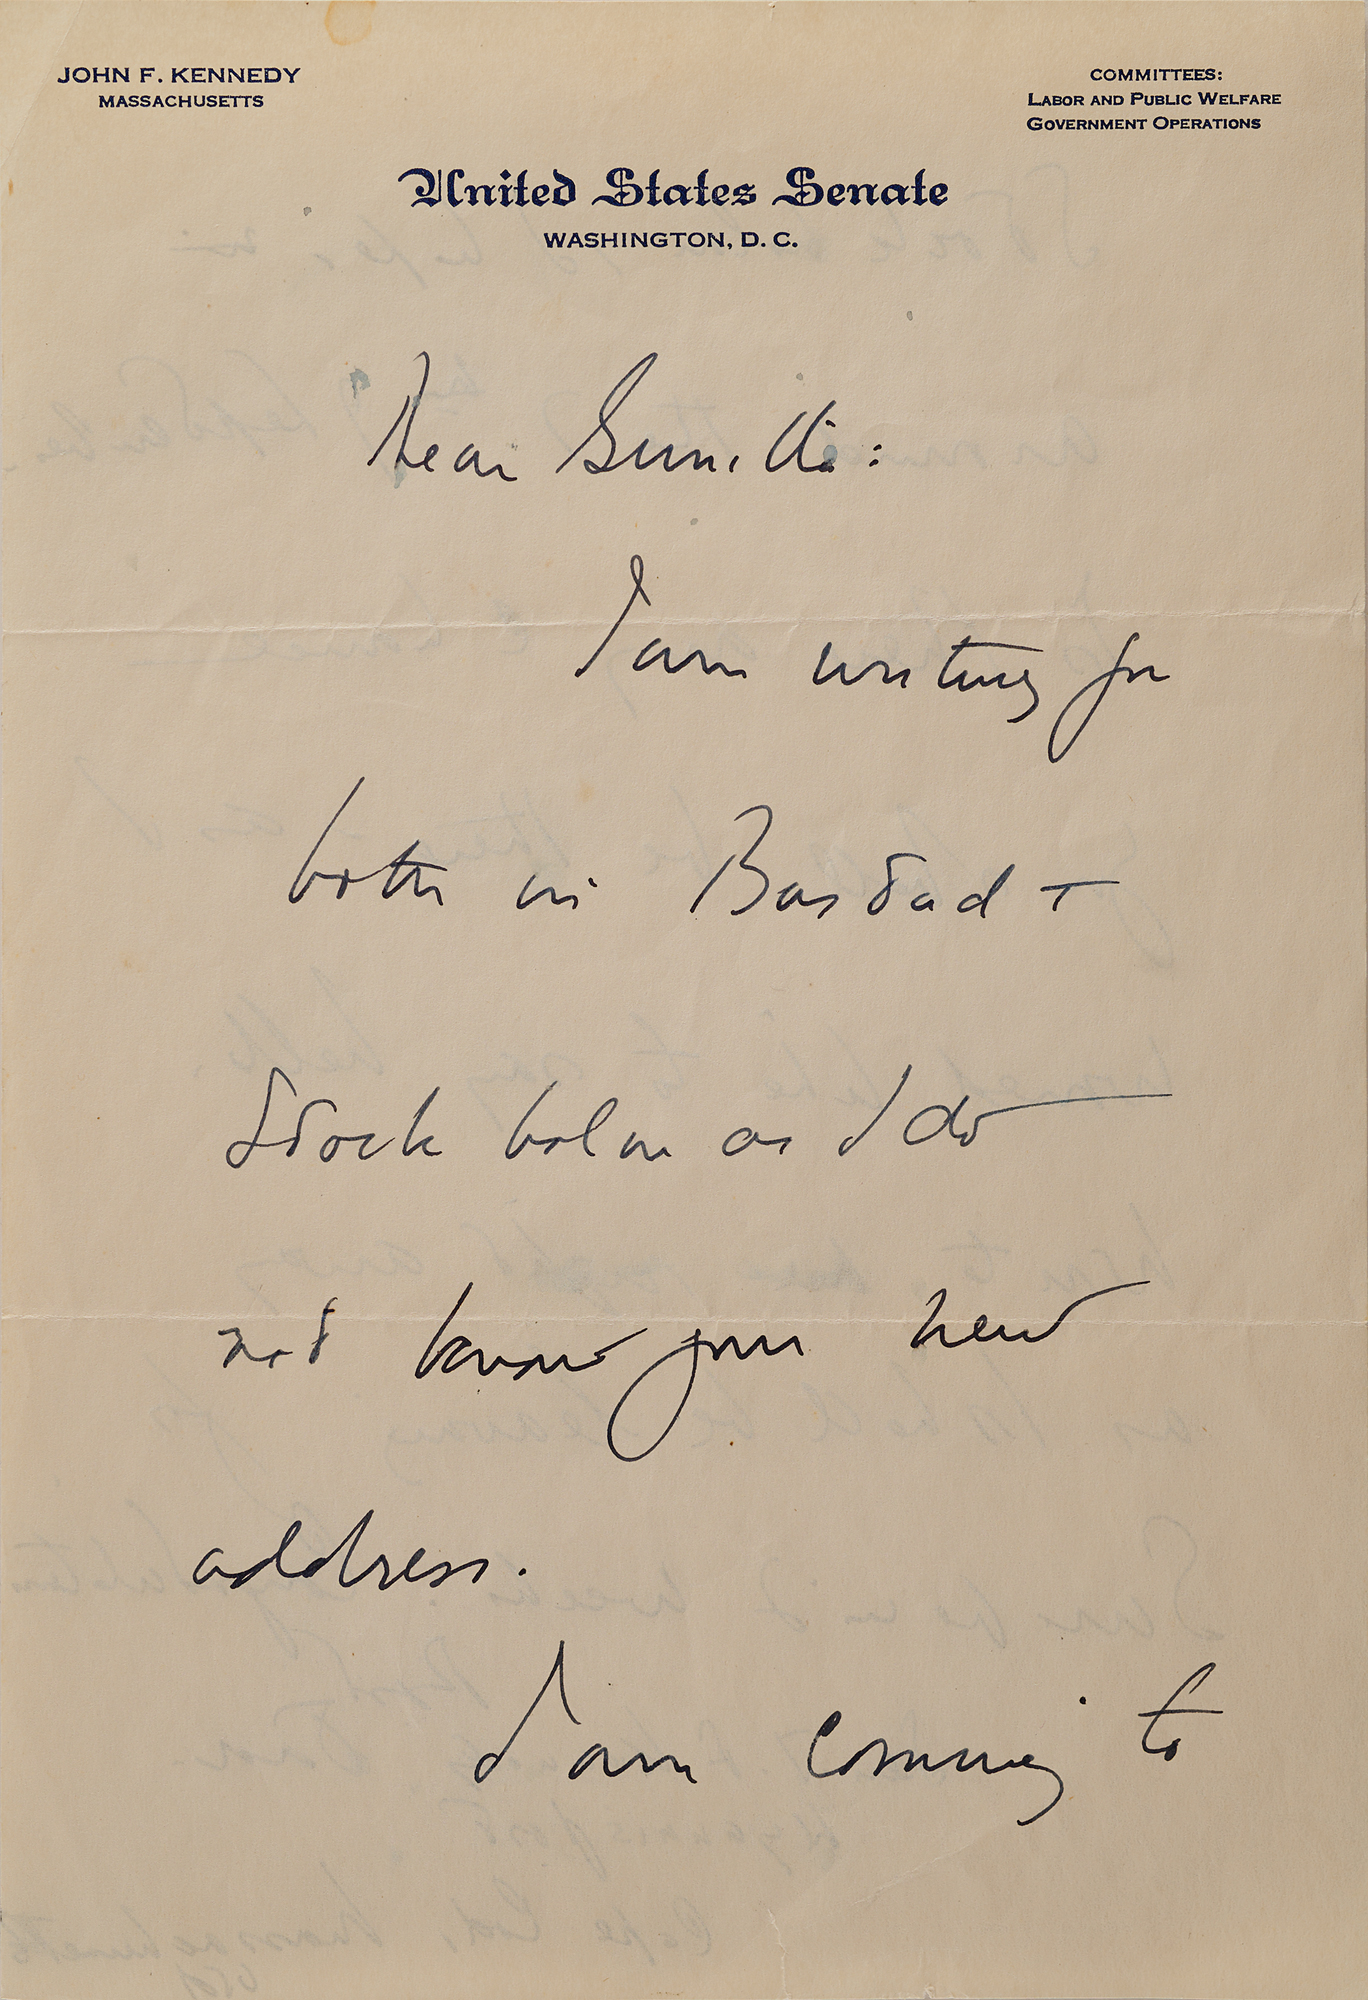 JOHN F. KENNEDY
MASSACHUSETTS
COMMITTEES:
LABOR AND PUBLIC WELFARE
GOVERNMENT OPERATIONS
United States Senate
WASHINGTON, D. C.
Dear Gunilla:
I am writing for
both in Bastad +
Stockholm as I do
not know your new
address.
I am coming to